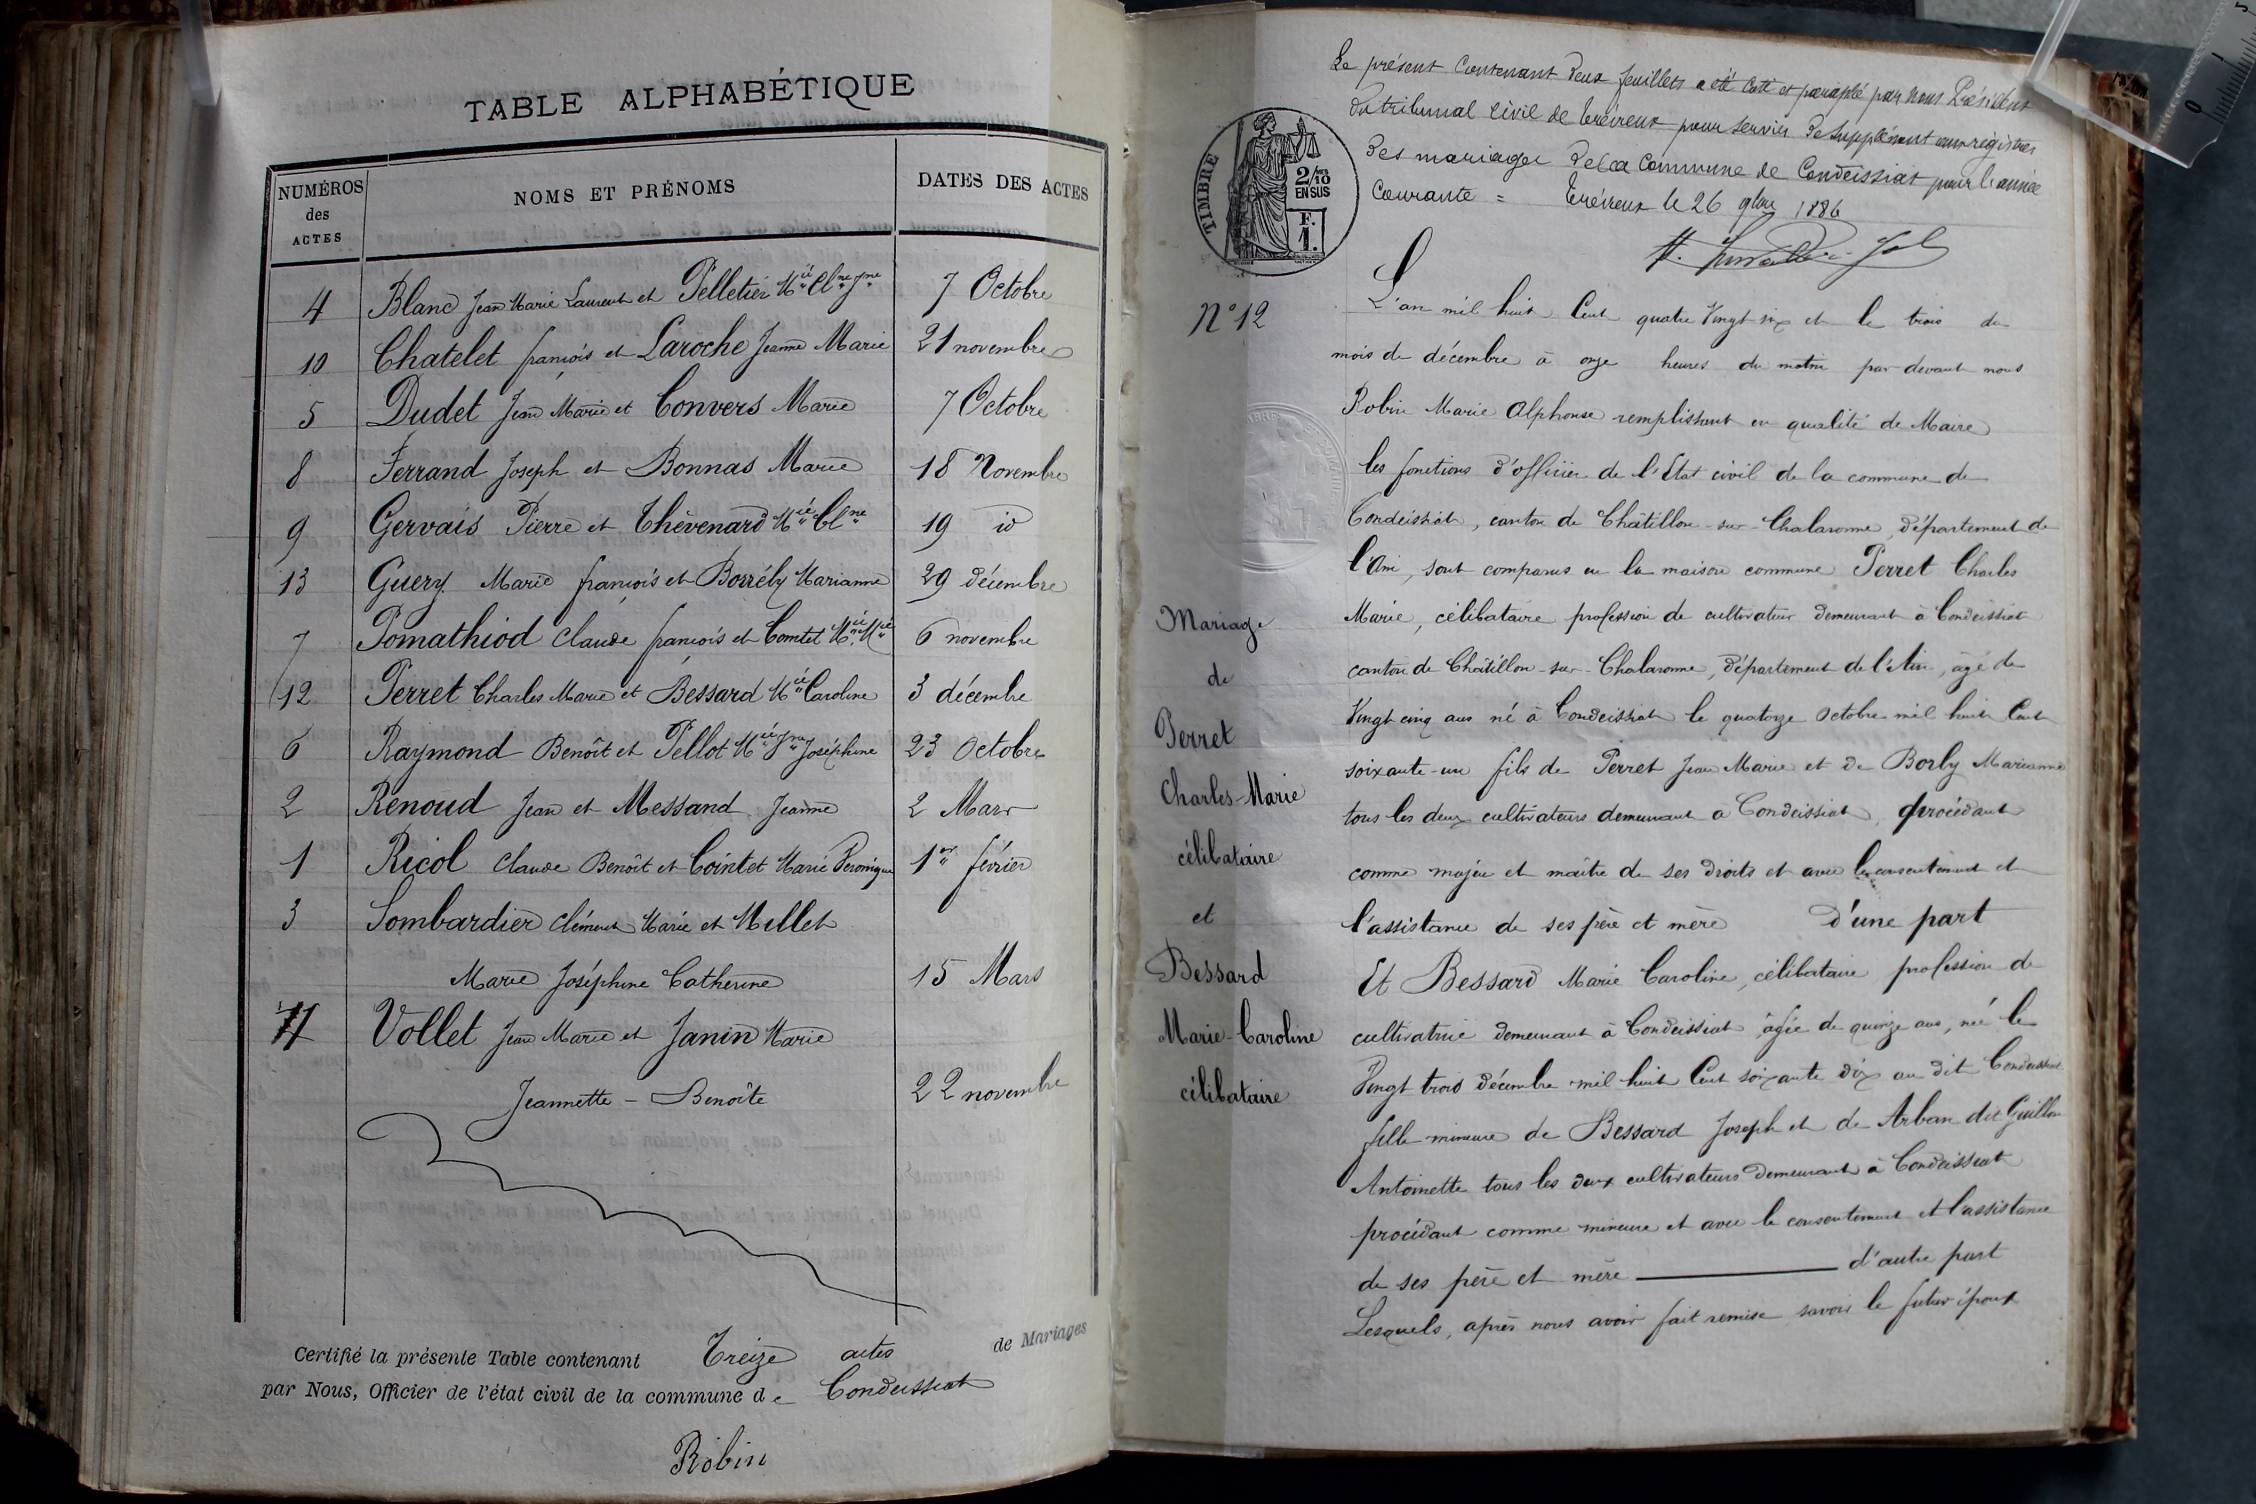 TABLE ALPHABÉTIQUE
NUMÉROS des ACTES NOMS ET PRÉNOMS DATES DES ACTES
4 Blanc Jean Marie Laurent et Pelletier Mie Clne Jne 7 Octobre
10 Chatelet françois et Laroche Jeanne Marie 21 novembre
5 Dudet Jean Marie et Convers Marie 7 Octobre
8 Ferrand Joseph et Bonnas Marie 18 Novembre
9 Gervais Pierre et Thévenard Mie Clne 19 id
13 Guery Marie françois et Borrély Marianne 29 décembre
7 Pomathiod Claude françois et Comtet Mie Mie 6 novembre
12 Perret Charles Marie et Bessard Mie Caroline 3 décembre
6 Raymond Benoît et Pellot Mie Jne Joséphine 23 Octobre
2 Renoud Jean et Messand Jeanne 2 Mars
1 Ricol Claude Benoît et Cointet Marie Véronique 1er février
3 Sombardier Clément Marie et Millet
Marie Joséphine Catherine 15 Mars
11 Vollet Jean Marie et Janin Marie
Jeannette - Benoîte 22 novembre
Certifié la présente Table contenant Treize actes de Mariages
par Nous, Officier de l'état civil de la commune de Condeissiat
Robin
Le présent contenant deux feuillets a été coté et paraphé par nous Président
du tribunal civil de Trévoux pour servir de supplément aux registres
des mariages de la commune de Condeissiat pour l'année
courante = Trévoux le 26 9bre 1886
TIMBRE
2/10 EN SUS
F. 1.
N° 12
L'an mil huit Cent quatre Vingt six et le trois du
mois de décembre à onze heures du matin par devant nous
Robin Marie Alphonse remplissant en qualité de Maire
les fonctions d'officier de l'État civil de la commune de
Condeissiat, canton de Châtillon-sur-Chalaronne, département de
l'Ain, sont comparus en la maison commune Perret Charles
Marie, célibataire profession de cultivateur demeurant à Condeissiat
canton de Châtillon-sur-Chalaronne, département de l'Ain, âgé de
Vingt cinq ans né à Condeissiat le quatorze Octobre mil huit Cent
soixante-un fils de Perret Jean Marie et de Borly Marianne
tous les deux cultivateurs demeurant à Condeissiat, procédant
comme majeur et maître de ses droits et avec le consentement et
l'assistance de ses père et mère d'une part
Et Bessard Marie Caroline, célibataire profession de
cultivatrice demeurant à Condeissiat, âgée de quinze ans, née le
Vingt trois décembre mil huit Cent soixante dix au dit Condeissiat
fille mineure de Bessard Joseph et de Arban dit Guillon
Antoinette tous les deux cultivateurs demeurant à Condeissiat
procédant comme mineure et avec le consentement et l'assistance
de ses père et mère d'autre part
Lesquels, après nous avoir fait remise savoir le futur époux
Mariage
de
Perret
Charles-Marie
célibataire
et
Bessard
Marie-Caroline
célibataire